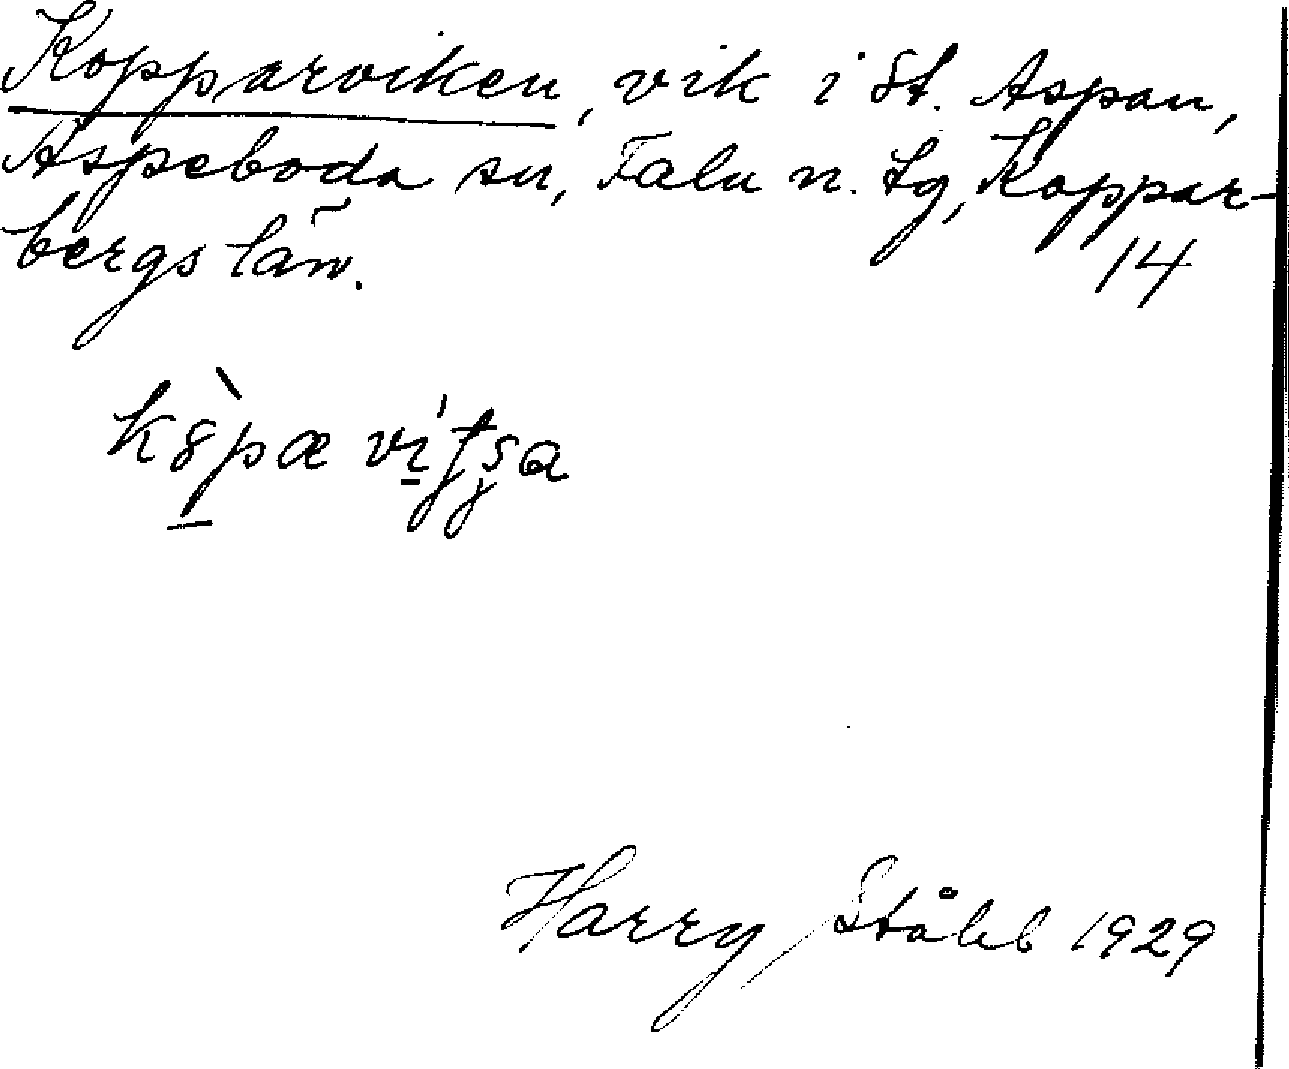 Kopparviken, vik i St. Aspan,
Aspeboda sn, Falu n. tg, Koppar-
bergs län.
14
Harry Ståhl 1929